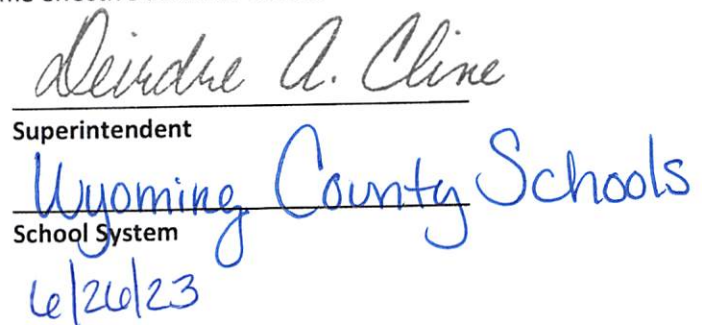 Deirdre A. Cline
Superintendent
Wyoming County Schools
School System
6/26/23